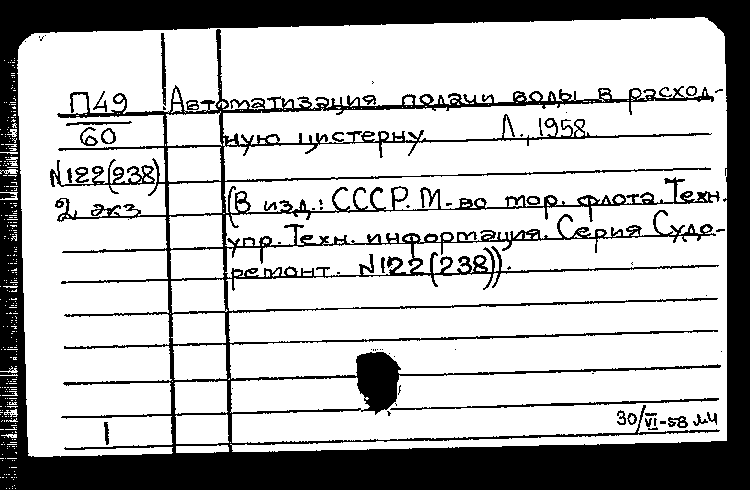 П49 Автоматизация подачи воды в расход-
60 ную цистерну. Л., 1958.
N122(238)
2 экз. (В изд.: СССР. М-во мор. флота. Техн.
упр. Техн. информация. Серия Судо-
ремонт. N122(238)).
1 30/VI-58